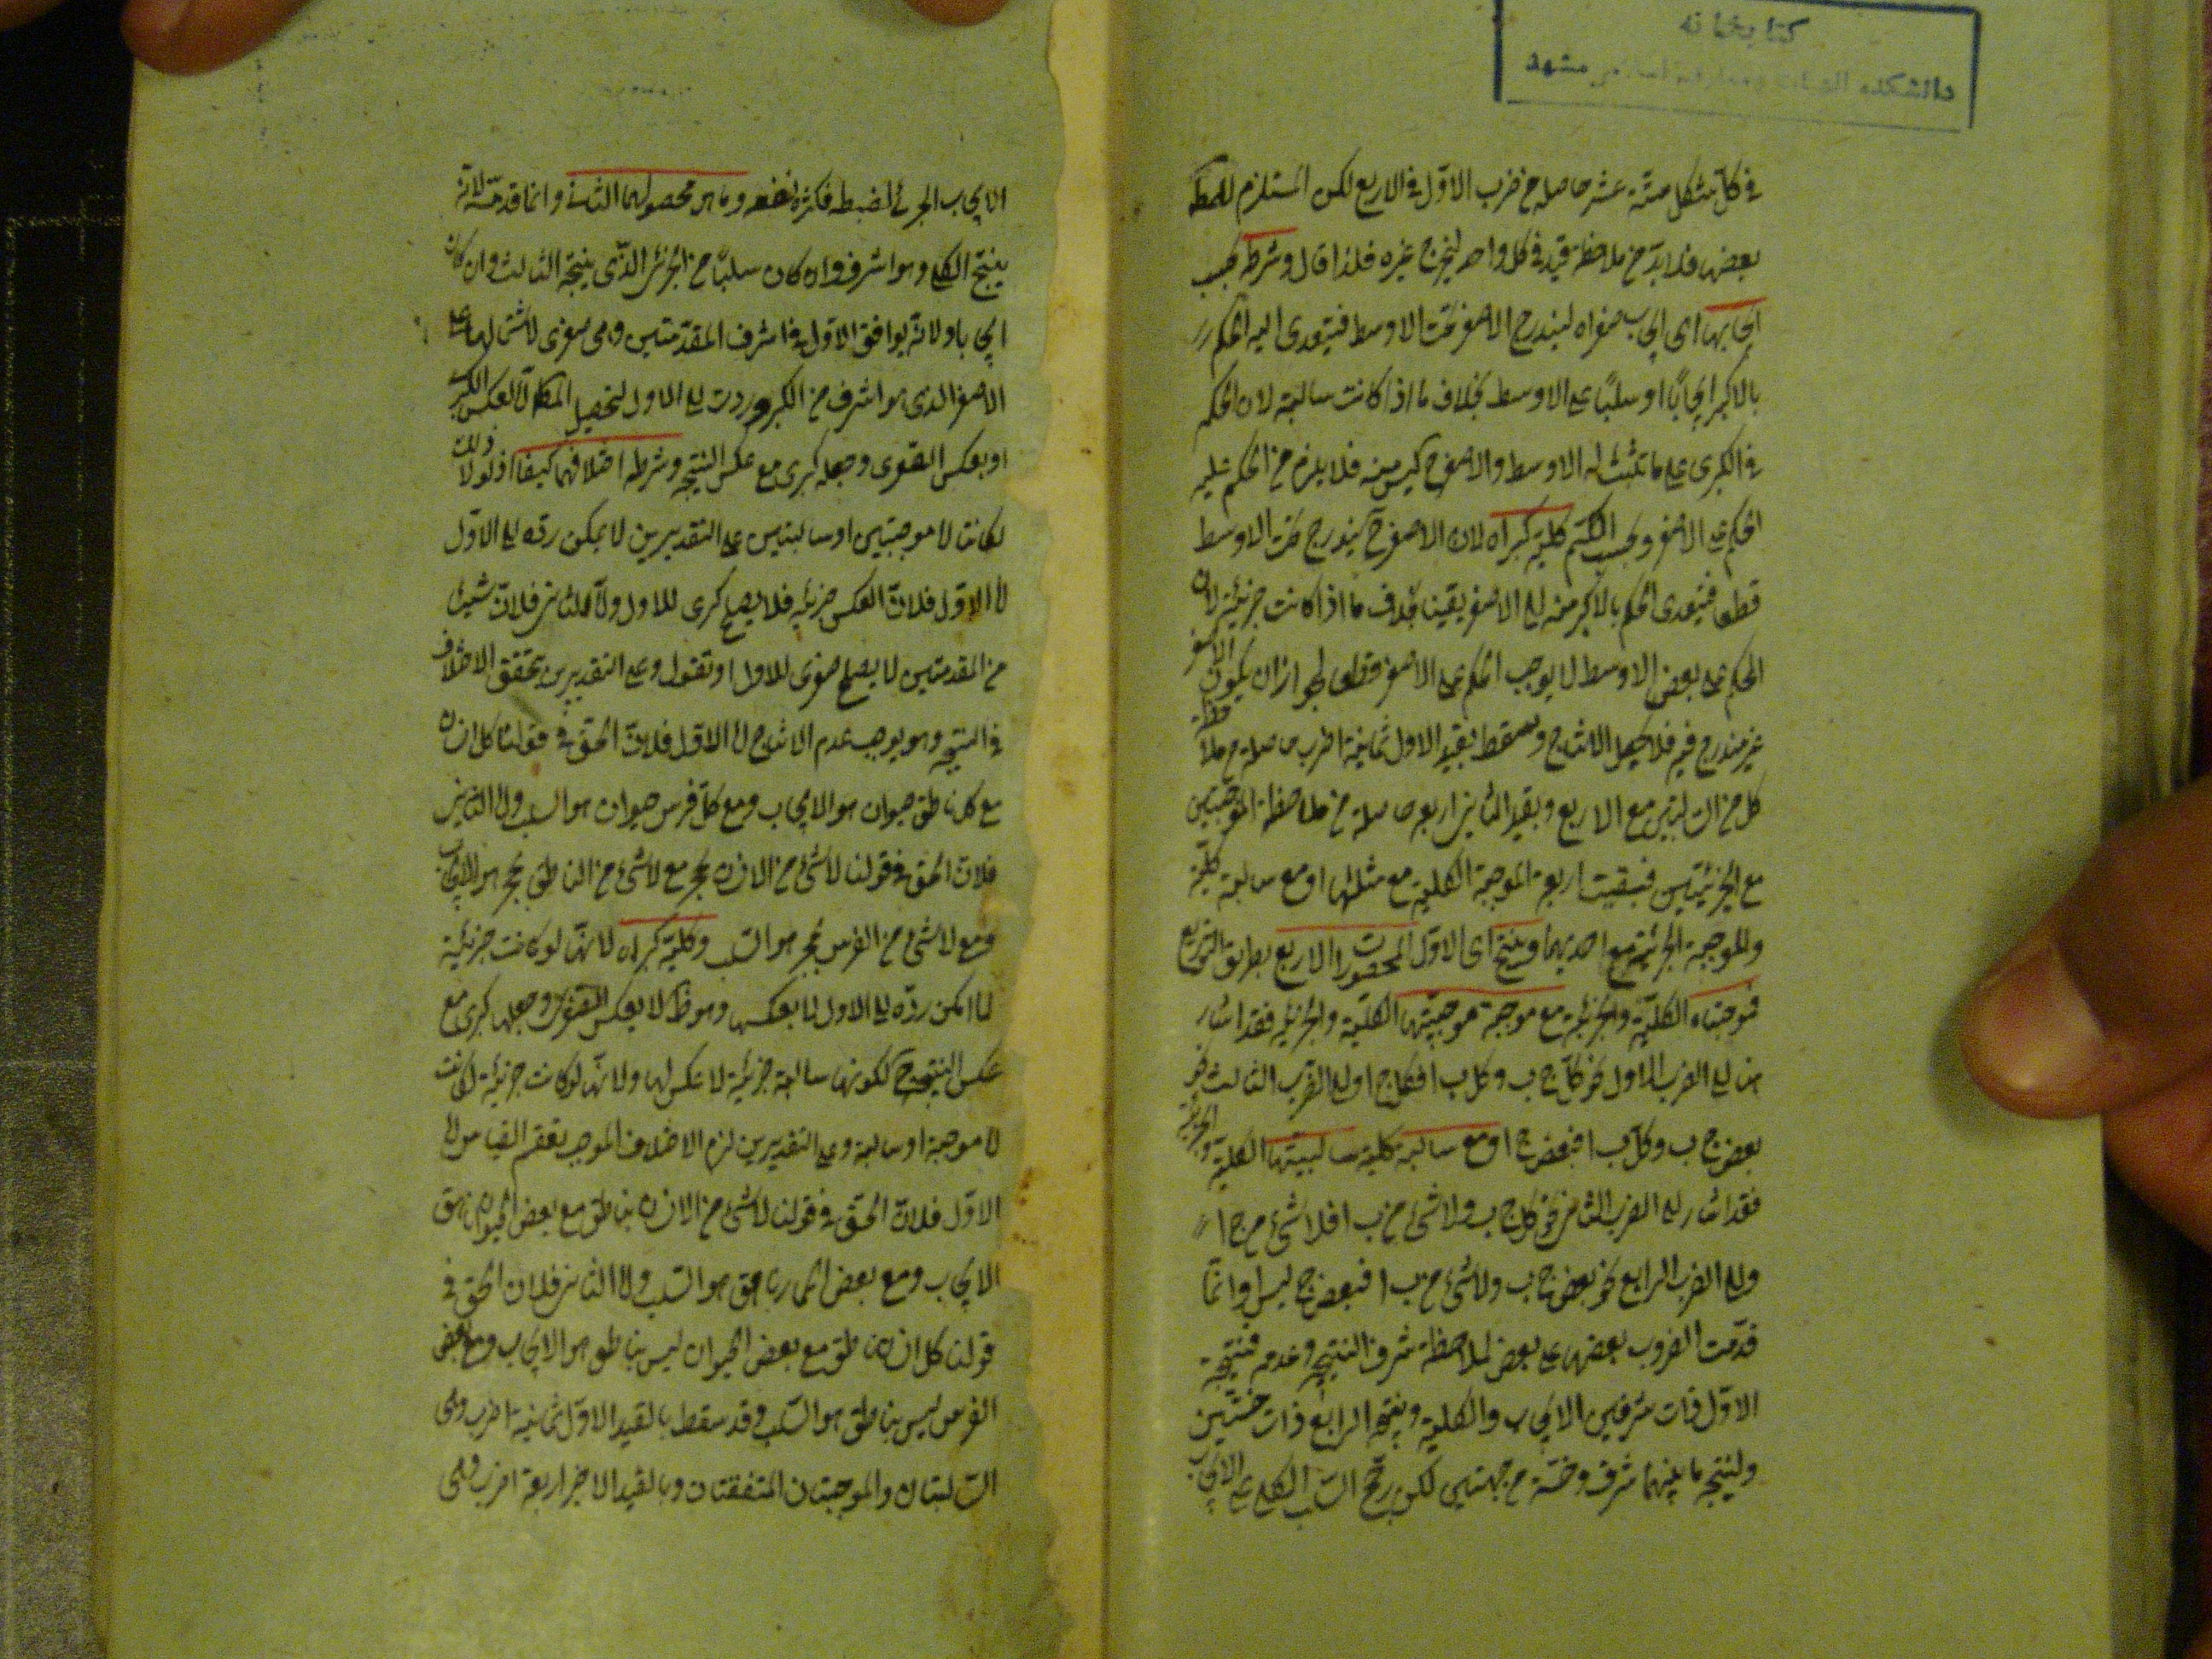 كتابخانه
دانشكده الهيات ومعارف اسلامى مشهد
فى كل شكل ستة عشر حاصلة من ضرب الاول فى الاربع لكن المستلزم للمط
بعضها فلا بد من ملاحظة قيد فى كل واحد ليخرج غيره فلذا قال وشرطه بحسب
ايجابها اى ايجاب صغراه ليندرج الاصغر تحت الاوسط فيتعدى اليه الحكم
بالاكبر ايجابًا او سلبًا على الاوسط بخلاف ما اذا كانت سالبة لان الحكم
فى الكبرى على ما يثبت له الاوسط والاصغر ح ليس منه فلا يلزم من الحكم عليه
الحكم على الاصغر وبحسب الكم كلية كبراه لان الاصغر ح يندرج تحت الاوسط
قطعا فيتعدى الحكم بالاكبر منه الى الاصغر يقينا بخلاف ما اذا كانت جزئية لان
الحكم على بعض الاوسط لا يوجب الحكم على الاصغر قطعا لجواز ان يكون الاصغر
غير مندرج فيه فلا يحصل الانتاج ويسقط بقيد الاول ثمانية اضرب حاصلة من ملاحظة
كل من السالبتين مع الاربع وبقيد الثانى اربعه حاصلة من ملاحظة الموجبتين
مع الجزئيتين فبقيت اربعة الموجبة الكلية مع مثلها او مع سالبة كلية
وللموجبة الجزئية مع احديهما وينتج اى الاول المحصورات الاربع بطريق التوزيع
فموجبتاه الكلية والجزئية مع موجبة موجبتها الكلية والجزئية فقد اشار
بهذا الى الضرب الاول نحو كل ج ب وكل ب ا فكل ج ا والى الضرب الثالث نحو
بعض ج ب وكل ب ا فبعض ج ا ومع سالبة كلية سالبيتها الكلية والجزئية
فقد اشار الى الضرب الثانى نحو كل ج ب ولا شئ من ب ا فلا شئ من ج ا
والى الضرب الرابع نحو بعض ج ب ولا شئ من ب ا فبعض ج ليس ا وانما
قدمت الضروب بعضها على بعض لملاحظة شرف النتيجة وعدمه فنتيجة
الاول ذات شرفين الايجاب والكلية ونتيجة الرابع ذات خستين
ولنتيجة ما بينهما شرف وخسة من جهتين لكن رجح السلب الكلى على الايجاب
الايجاب الجزئى لضبطه فكثرة نفعه وما هى محصولها الثانى وانما قدمته لانه
ينتج الكلى وهو اشرف وان كان سلبًا من الجزئى الذى ينتجه الثالث وان كان
ايجابا ولانه يوافق الاول فى اشرف المقدمتين وهى صغرى لاشتمالها على
الاصغر الذى هو اشرف من الاكبر وردت الى الاول لتحصيل المط اما لعكس الكبرى
او بعكس الصغرى وجعله كبرى مع عكس النتيجه وشرطه اختلافهما كيفا اذ لولا ذلك
لكانتا لا موجبتين او سالبتين على التقديرين لا يمكن رده الى الاول
اما الاول فلان العكس جزئيه فلا يصلح كبرى للاول واما الثانى فلان شيئا
من المقدمتين لا يصلح صغرى للاول او نقول وعلى التقديرين تحقق الاختلاف
فى النتيجه وهو يوجب عدم الانتاج اما الاول فلان الحق فى قولنا كل انسان
مع كل ناطق حيوان هو الايجاب ومع كل فرس حيوان هو السلب واما الثانى
فلان الحق فى قولنا لا شئ من الانسان بحجر مع لا شئ من الناطق بحجر هو الايجاب
ومع لا شئ من الفرس بحجر هو السلب وكلية كبراه لانها لو كانت جزئية
لما امكن رده الى الاول لا بعكسها وهو ظ ولا بعكس الصغرى وجعلها كبرى مع
عكس النتيجة ح لكونها سالبة جزئية لا عكس لها ولانها لو كانت جزئية لكانت
اما موجبة او سالبة وعلى التقديرين لزم الاختلاف الموجب لعقم القياس اما
الاول فلان الحق فى قولنا لا شئ من الانسان بناهق مع بعض الحيوان ناهق
الايجاب ومع بعض الحمار ناهق هو السلب واما الثانى فلان الحق فى
قولنا كل انسان ناطق مع بعض الحيوان ليس بناطق هو الايجاب ومع بعض
الفرس ليس بناطق هو السلب وقد سقط بالقيد الاول ثمانية اضرب وهى
السالبتان والموجبتان المتفقتان وبالقيد الاخير اربعة اضرب وهى